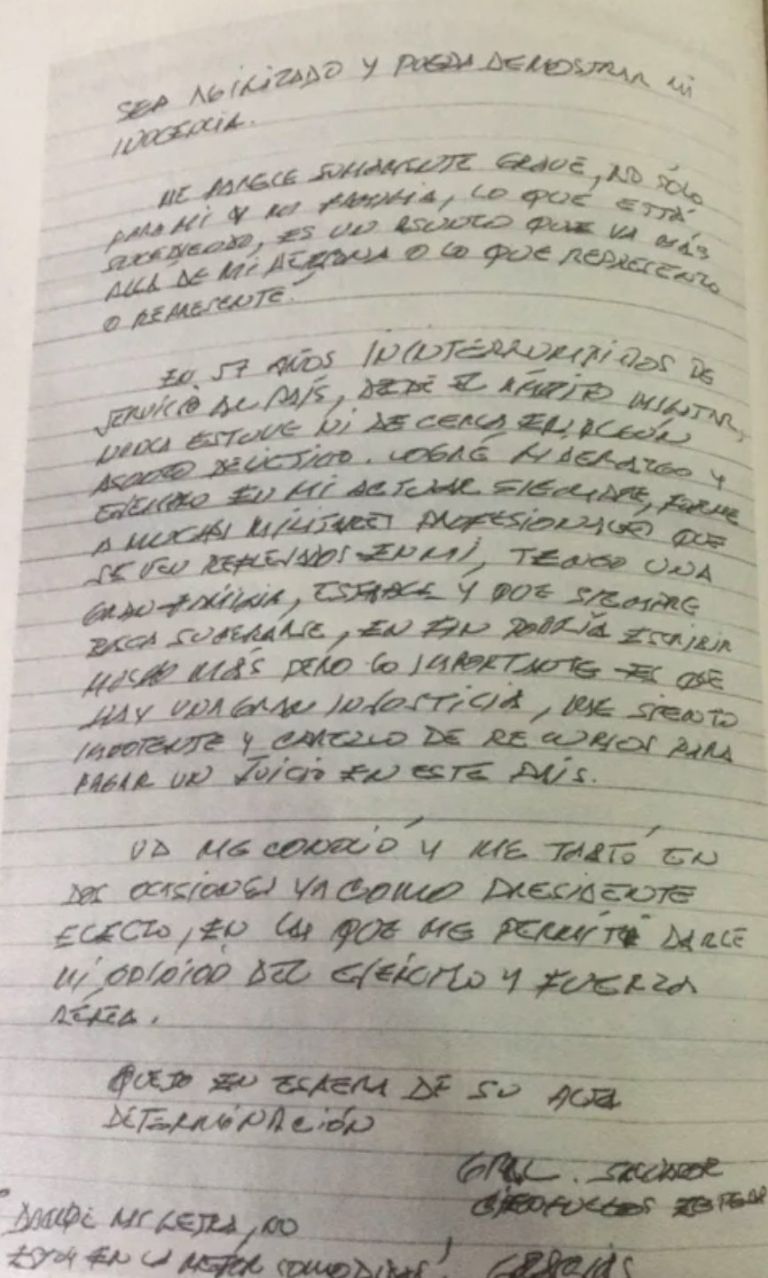 SEA AGILIZADO Y PUEDA DEMOSTRAR MI
INOCENCIA.
ME PARECE SUMAMENTE GRAVE, NO SÓLO
PARA MI Y MI FAMILIA, LO QUE ESTÁ
SUCEDIENDO, ES UN ASUNTO QUE VA MÁS
ALLÁ DE MI PERSONA O LO QUE REPRESENTO
O REPRESENTÉ.
EN 57 AÑOS ININTERRUMPIDOS DE
SERVICIO AL PAÍS, DESDE EL ÁMBITO MILITAR,
NUNCA ESTUVE NI DE CERCA EN ALGÚN
ASUNTO DELICTIVO. LOGRÉ LIDERAZGO Y
EJEMPLO EN MI ACTUAR SIEMPRE, FORME
A MUCHOS MILITARES PROFESIONALES QUE
SE VEN REFLEJADOS EN MI, TENGO UNA
GRAN FAMILIA, ESTABLE Y QUE SIEMPRE
BUSCA SUPERARSE, EN FIN PODRÍA ESCRIBIR
MUCHO MÁS PERO LO IMPORTANTE ES QUE
HAY UNA GRAN INJUSTICIA, ME SIENTO
IMPOTENTE Y CAREZCO DE RECURSOS PARA
PAGAR UN JUICIO EN ESTE PAÍS.
UD ME CONOCIÓ Y ME TRATÓ EN
DOS OCASIONES YA COMO PRESIDENTE
ELECTO, EN LAS QUE ME PERMITÍ DARLE
MI OPINIÓN DEL EJÉRCITO Y FUERZA
AÉREA.
QUEDO EN ESPERA DE SU ALTA
DETERMINACIÓN
GRAL. SALVADOR
CIENFUEGOS ZEPEDA
MI LETRA, NO
ESTOY EN LA MEJOR COMODIDAD,
GRACIAS